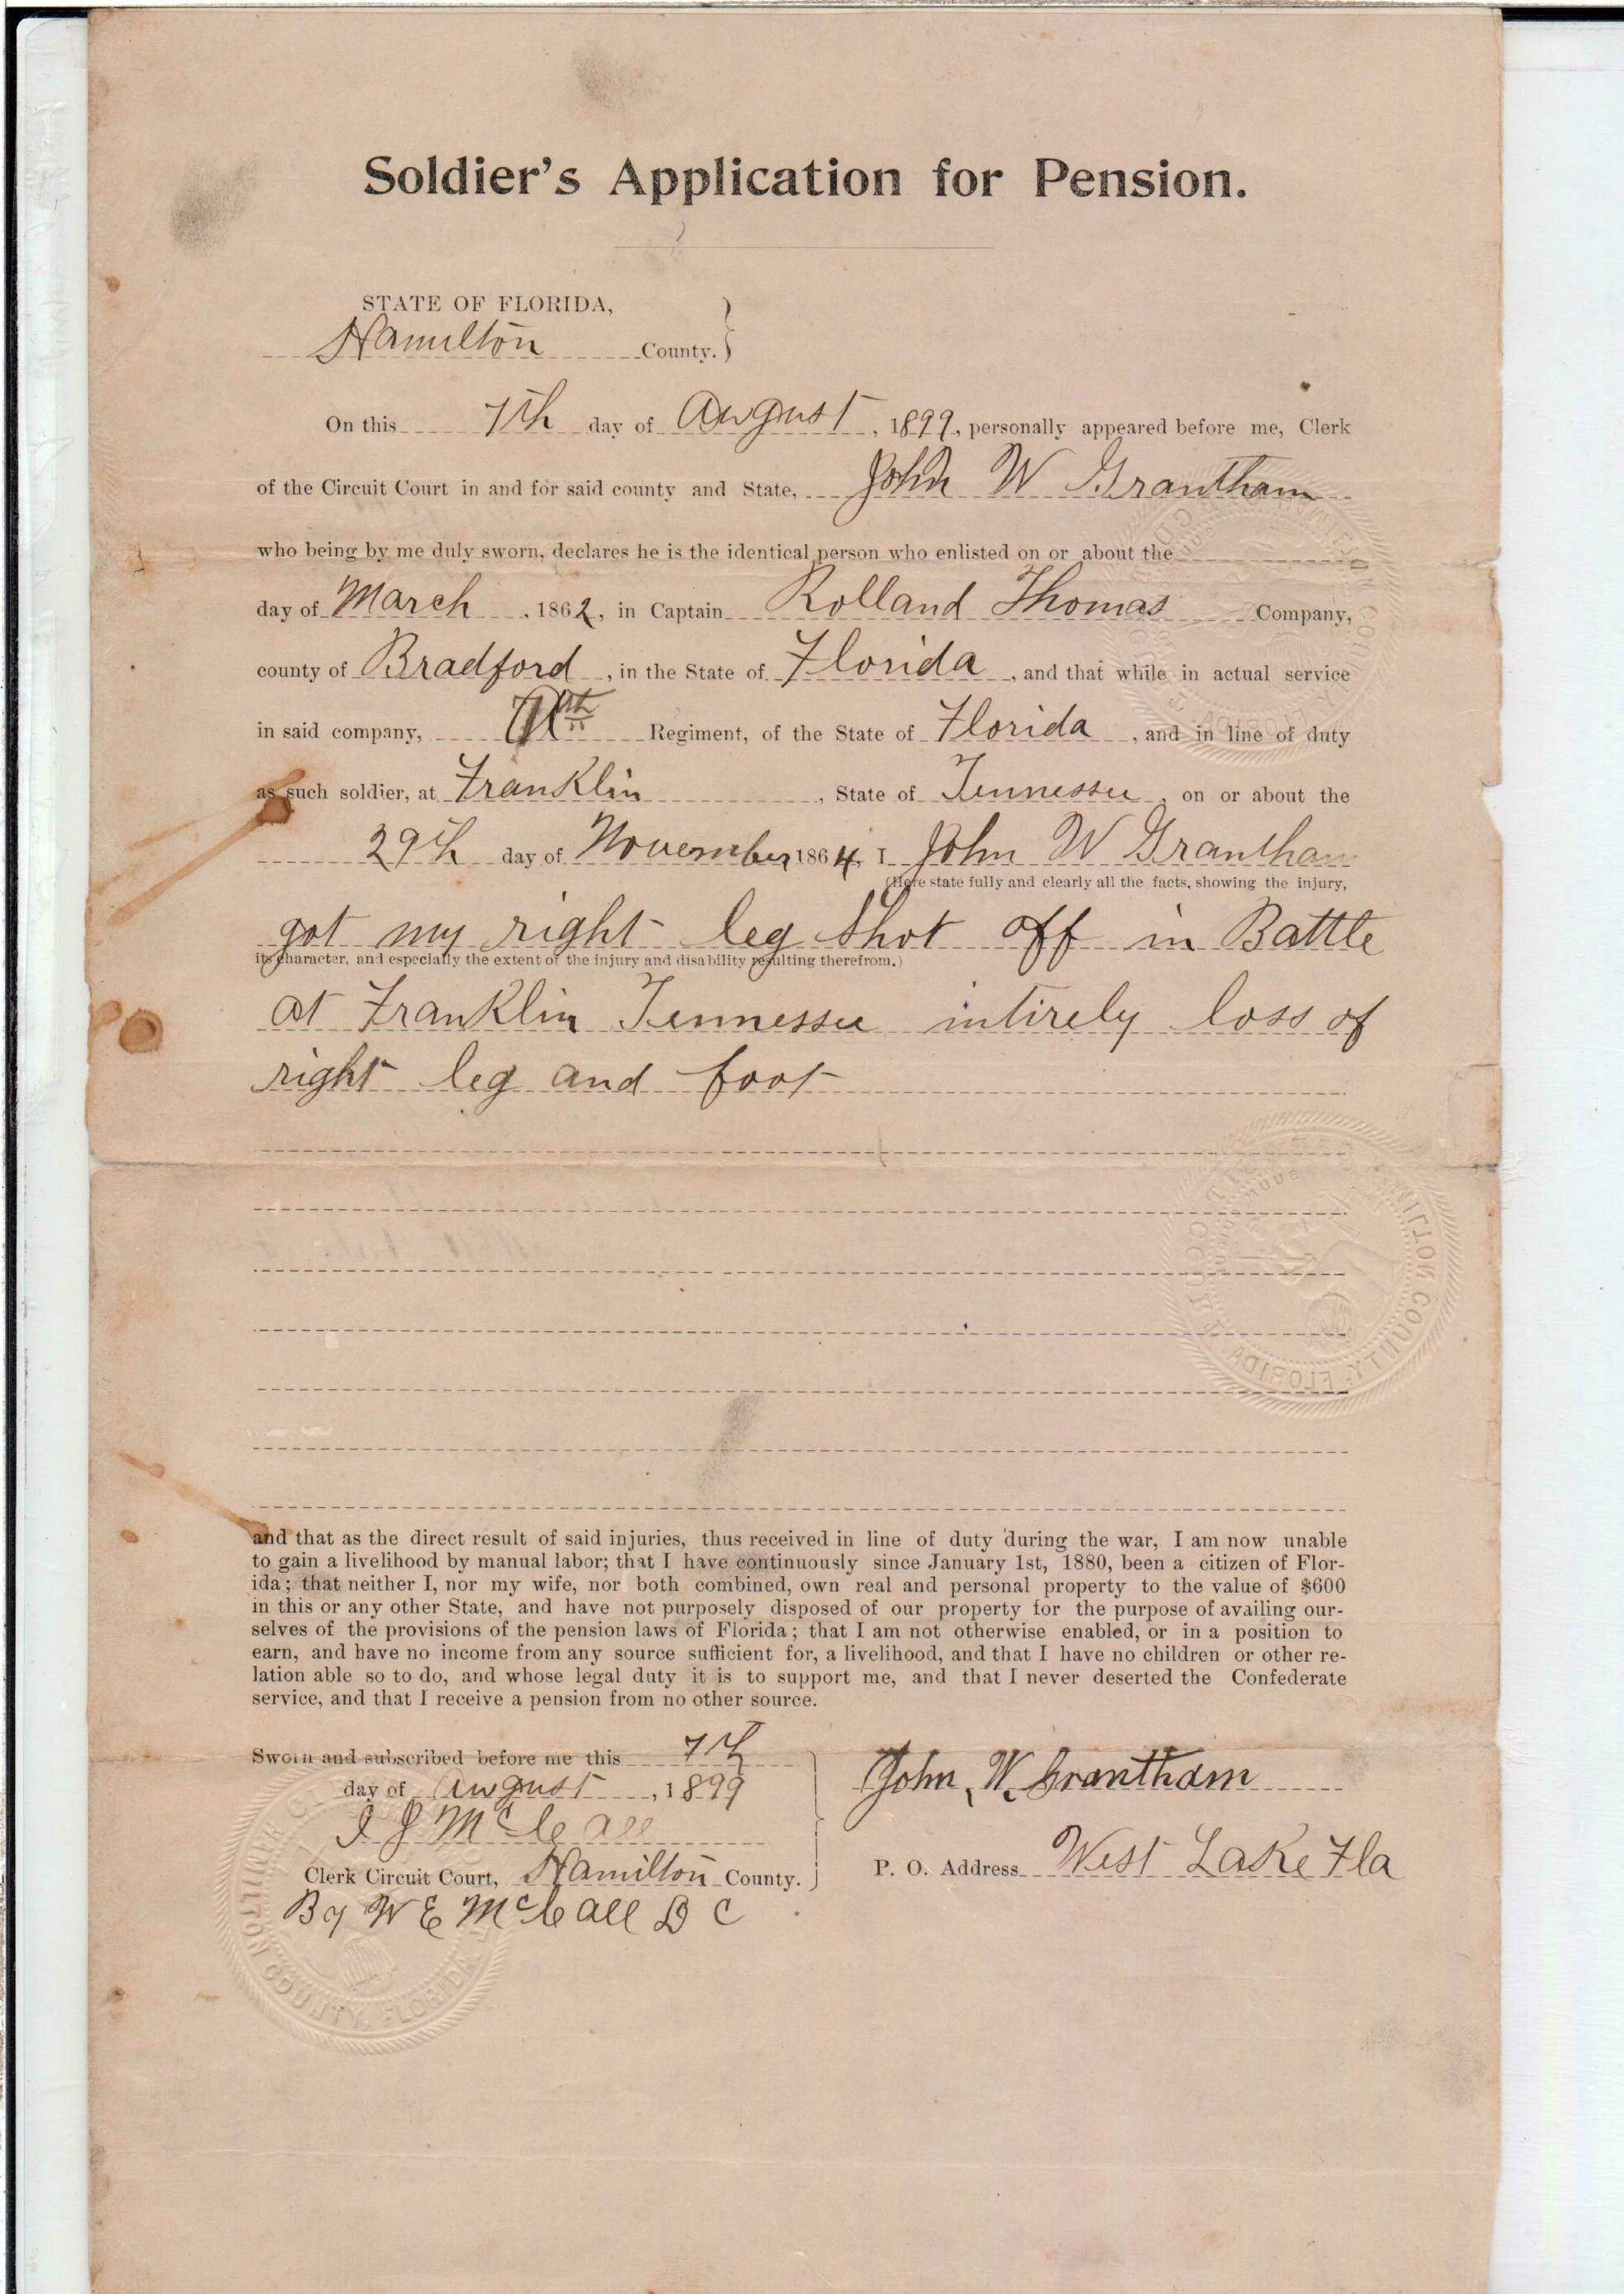 Soldier's Application for Pension.
STATE OF FLORIDA,
Hamilton County.
On this 7th day of August, 1899, personally appeared before me, Clerk
of the Circuit Court in and for said county and State, John W Grantham
who being by me duly sworn, declares he is the identical person who enlisted on or about the
day of March, 1862, in Captain Rolland Thomas Company,
county of Bradford, in the State of Florida, and that while in actual service
in said company, Regiment, of the State of Florida, and in line of duty
as such soldier, at Franklin, State of Tennessee, on or about the
29th day of November, 1864, I John W Grantham
(Here state fully and clearly all the facts, showing the injury,
got my right leg Shot off in Battle
its character, and especially the extent of the injury and disability resulting therefrom.)
at Franklin Tennessee intirely loss of
right leg and foot
and that as the direct result of said injuries, thus received in line of duty during the war, I am now unable
to gain a livelihood by manual labor; that I have continuously since January 1st, 1880, been a citizen of Flor-
ida; that neither I, nor my wife, nor both combined, own real and personal property to the value of $600
in this or any other State, and have not purposely disposed of our property for the purpose of availing our-
selves of the provisions of the pension laws of Florida; that I am not otherwise enabled, or in a position to
earn, and have no income from any source sufficient for, a livelihood, and that I have no children or other re-
lation able so to do, and whose legal duty it is to support me, and that I never deserted the Confederate
service, and that I receive a pension from no other source.
Sworn and subscribed before me this 7th
day of August, 1899
John W. Grantham
I J McCall
Clerk Circuit Court, Hamilton County.
P. O. Address West Lake Fla
By W E McCall D C
HAMILTON COUNTY, FLORIDA